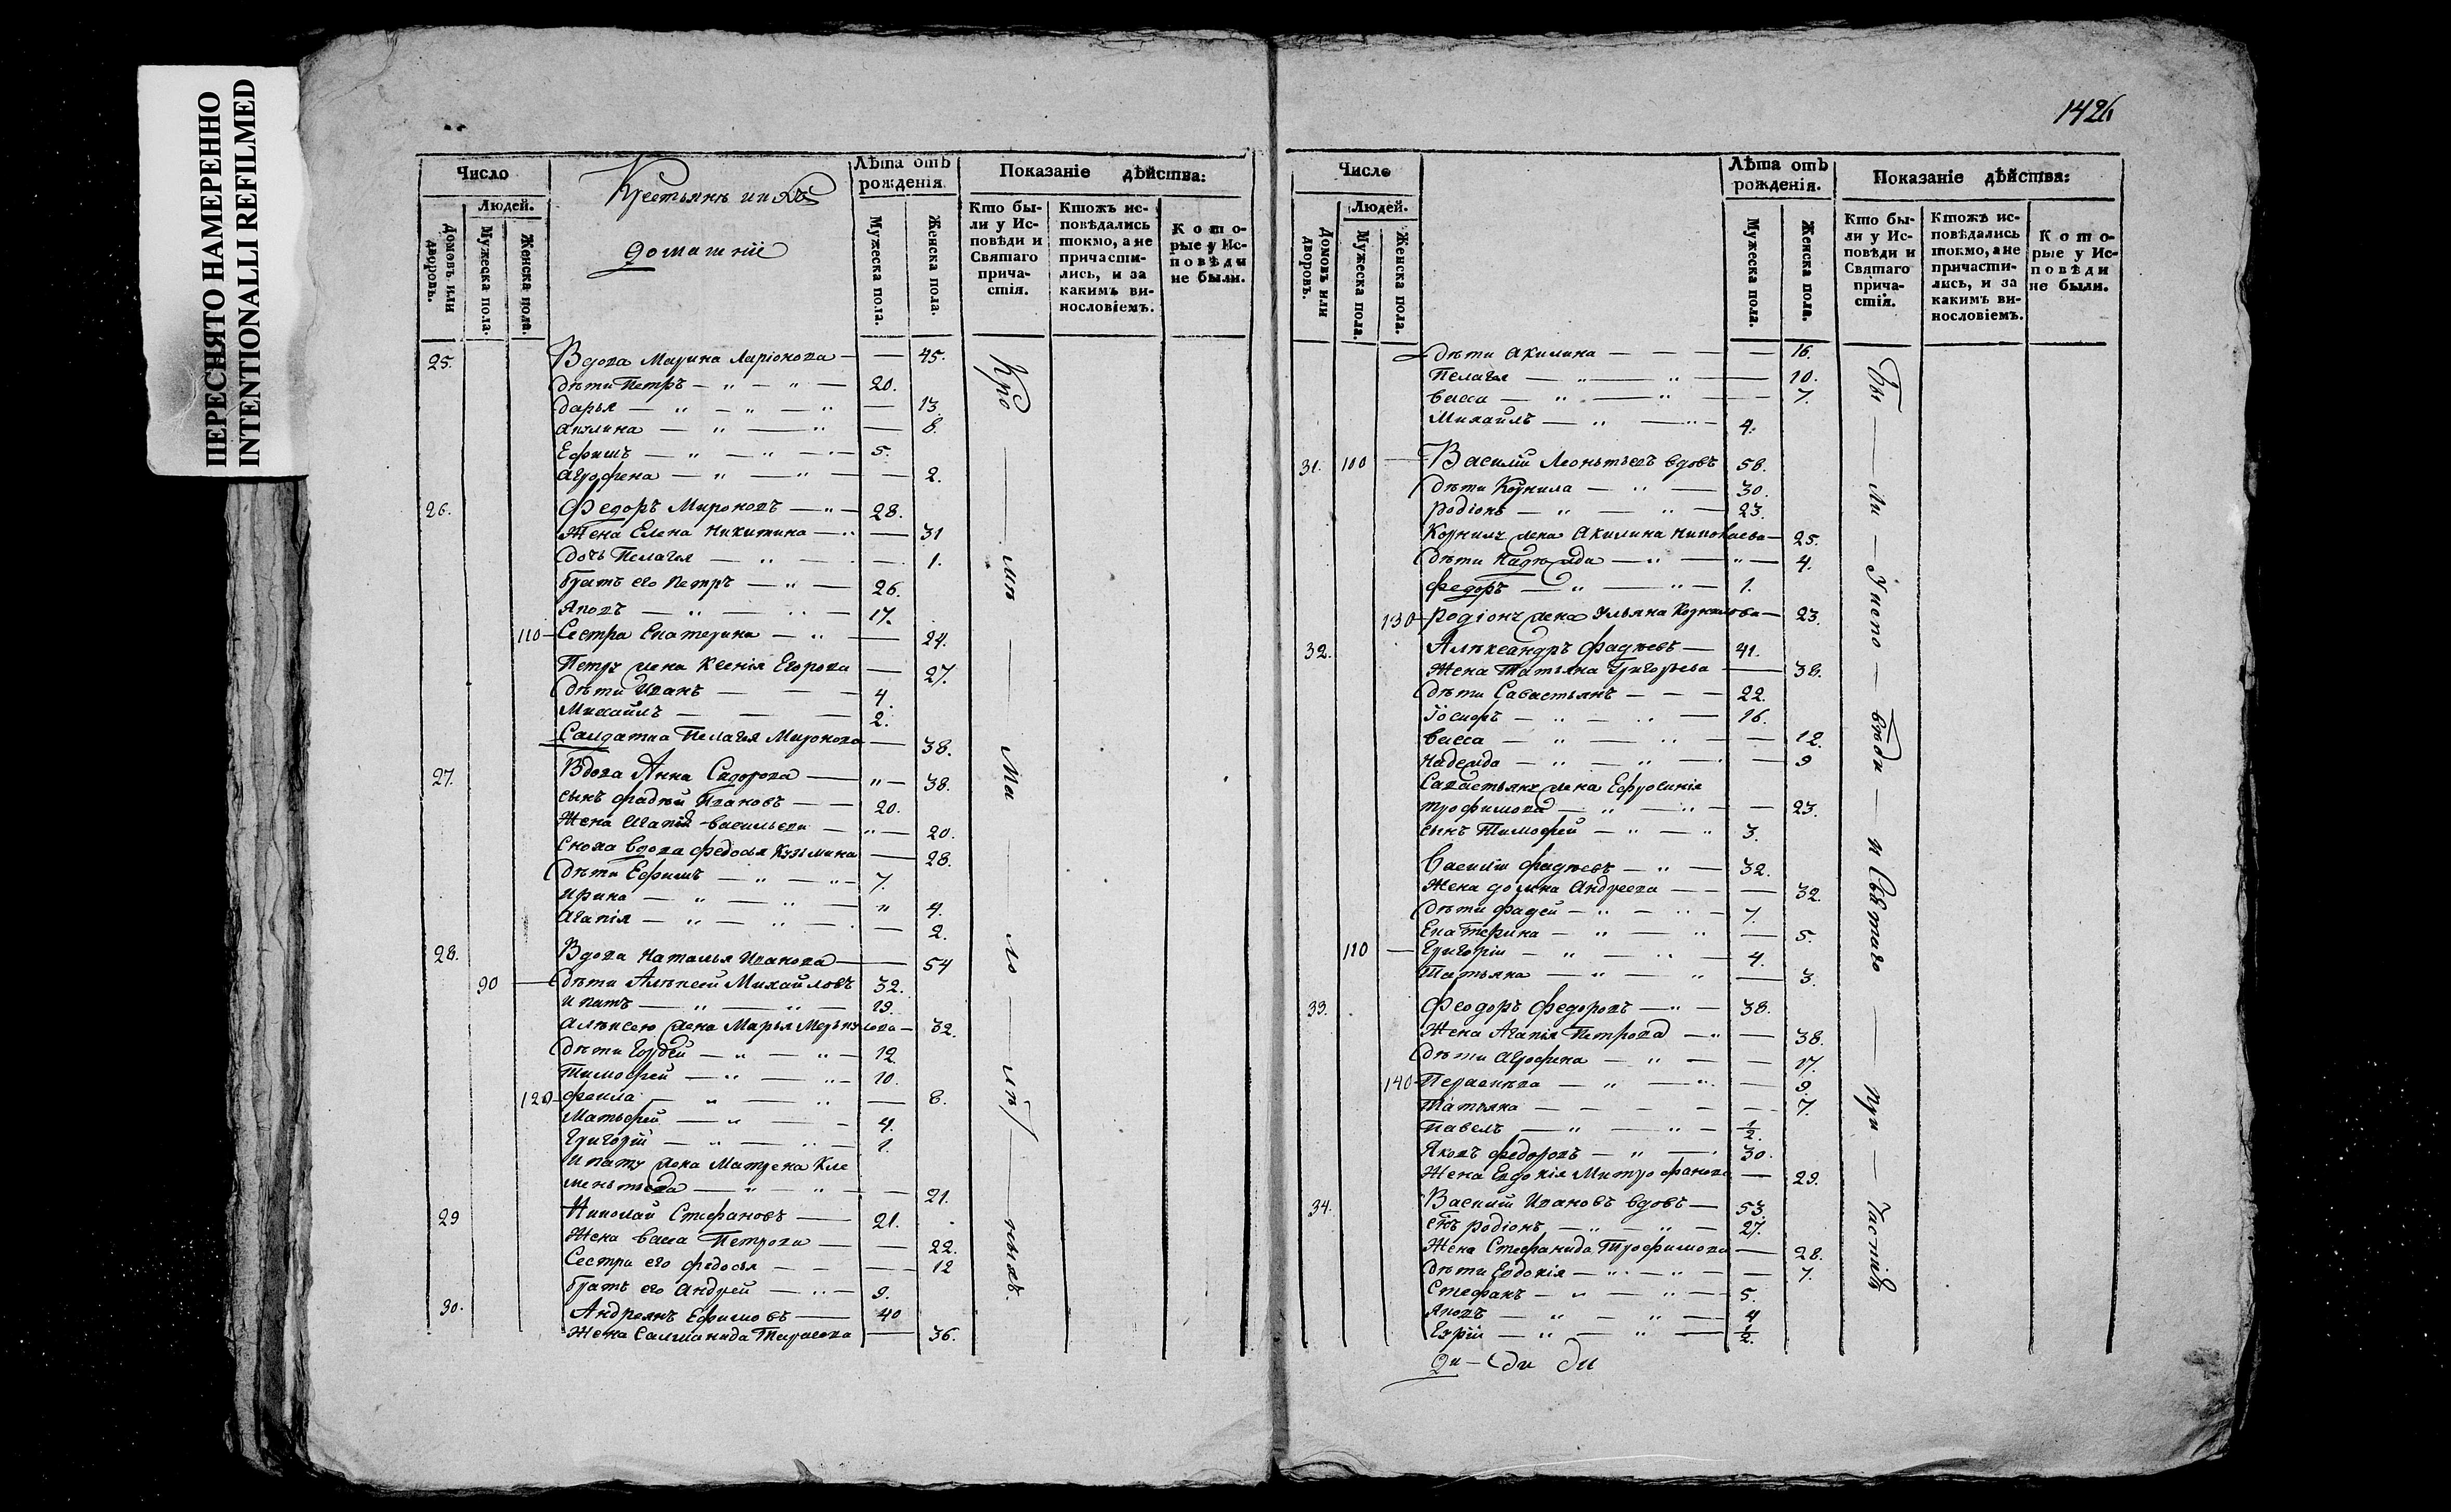 ПЕРЕСНЯТО НАМЕРЕННО
INTENTIONALLI REFILMED
1426
Число
Людей.
Домовъ или дворовъ.
Мужеска пола.
Женска пола.
Крестьянъ и ихъ
домашніе
Лѣта отъ рожденія
Мужеска пола.
Женска пола.
Показаніе дѣйства:
Кто бы-
ли у Ис-
повѣди и
Святаго
прича-
стія.
Ктожъ ис-
повѣдались
токмо, а не
причасти-
лись, и за
какимъ ви-
нословіемъ.
Кото-
рые у Ис-
повѣди
не были.
25. Вдова Марина Ларіонова — — 45.
дѣти Петръ — " — " — 20.
дарья — " — " — " — 13.
акилина — " — " — 8.
Ефимъ — " — " — 5.
агрофена — " — " — 2.
26. Федоръ Мироновъ — " — 28.
Жена Елена Никитина — " — 31
дочь Пелагея — " — — 1.
братъ его Петръ — " — 26.
Яковъ — " — " — 17.
110 — Сестра Екатерина — " — 24.
Петру жена Ксенія Егорова — 27.
дѣти Иванъ — — — 4.
Михайлъ — — — 2.
Салдатка Пелагея Миронова — 38.
27. Вдова Анна Сидорова — " — 38.
сынъ фадѣй Ивановъ — — 20.
Жена Агапія васильева — " — 20.
Сноха вдова федосья Кузьмина — 28.
дѣти Ефимъ — " — " — 7.
Ирина — " — " — " 4.
Агапія — " — " — 2.
28. Вдова Наталья Иванова — — 54
90 — дѣти Алѣксей Михайловъ 32.
Ипатъ — " — " — 19.
алѣксею жена Марья — 32.
дѣти Гордей — " — " — 12.
Тимофей — " — " — 10.
120 — фекла — " — " — 8.
Матьфей — " — — 4.
Григорій — " — " — 1.
Ипату жена Матрена Кле
меньтьева — " — " — — 21.
29 Николай Стефановъ — 21.
Жена васса Петрова — — 22.
Сестра его федосья — — — 12
братъ его Андрей — " — 9.
30. Андреянъ Ефимовъ — 40
Жена Саломанида Тарасова — 36.
Кро — мѣ — Ма — ло — лѣт — ныхъ.
Число
Людей.
Домовъ или дворовъ.
Мужеска пола
Женска пола.
Лѣта отъ рожденія.
Мужеска пола.
Женска пола.
Показаніе дѣйства:
Кто бы-
ли у Ис-
повѣди и
Святаго
прича-
стія.
Ктожъ ис-
повѣдались
токмо, а не
причасти-
лись, и за
какимъ ви-
нословіемъ.
Кото-
рые у Ис-
повѣди
не были.
дѣти Акилина — — — — 16.
Пелагея — " — " — — 10.
васса — " — " — — 7.
Михайлъ — " — " — 4.
31. 100 — Василій Леонтьевъ вдовъ 58.
дѣти Корнила — " — 30.
родіонъ — " — " — 23.
Корнилу жена Акилина — 25.
дѣти Надежда — " — " — 4.
федоръ — " — " — 1.
130 — родіону жена Ульяна Корнилова — 23.
32. Алѣксандръ фадѣевъ — 41.
Жена Татьяна Григорьева — 38.
дѣти Савастьянъ — — — 22.
Іосифъ — " — " — 16.
васса — " — " — — 12.
надежда — " — " — — 9
Савастьяну жена Ефросинія
трофимова — " — " — — 23.
сынъ Тимофей — " — " 3.
Василій фадѣевъ — " — 32.
Жена домна Андреева — — — 32.
дѣти фадей — " — " — 7.
Екатерина — " — " — 5.
110 — Григорій — " — " — 4.
Татьяна — " — " — 3.
33. Феодоръ федоровъ — " — 38.
Жена Агапія Петрова — " — 38.
дѣти Агрофена — " — — 17.
140 — Параскѣва — " — " — 9.
Татьяна — — — — 7.
Павелъ — " — " — 1/2.
Яковъ федоровъ — " — 30.
Жена Евдокія Митрофанова — 29.
34. Василій Ивановъ вдовъ — 53.
сынъ родіонъ — " — " — 27.
Жена Стефанида Трофимова — 28.
дѣти Евдокія — " — " — 7.
Стефанъ — " — " — 5.
Яковъ — " — " — 4
— " — " — 1/2.
Бы — ли — Испо — вѣди — и Святаго — при — частія